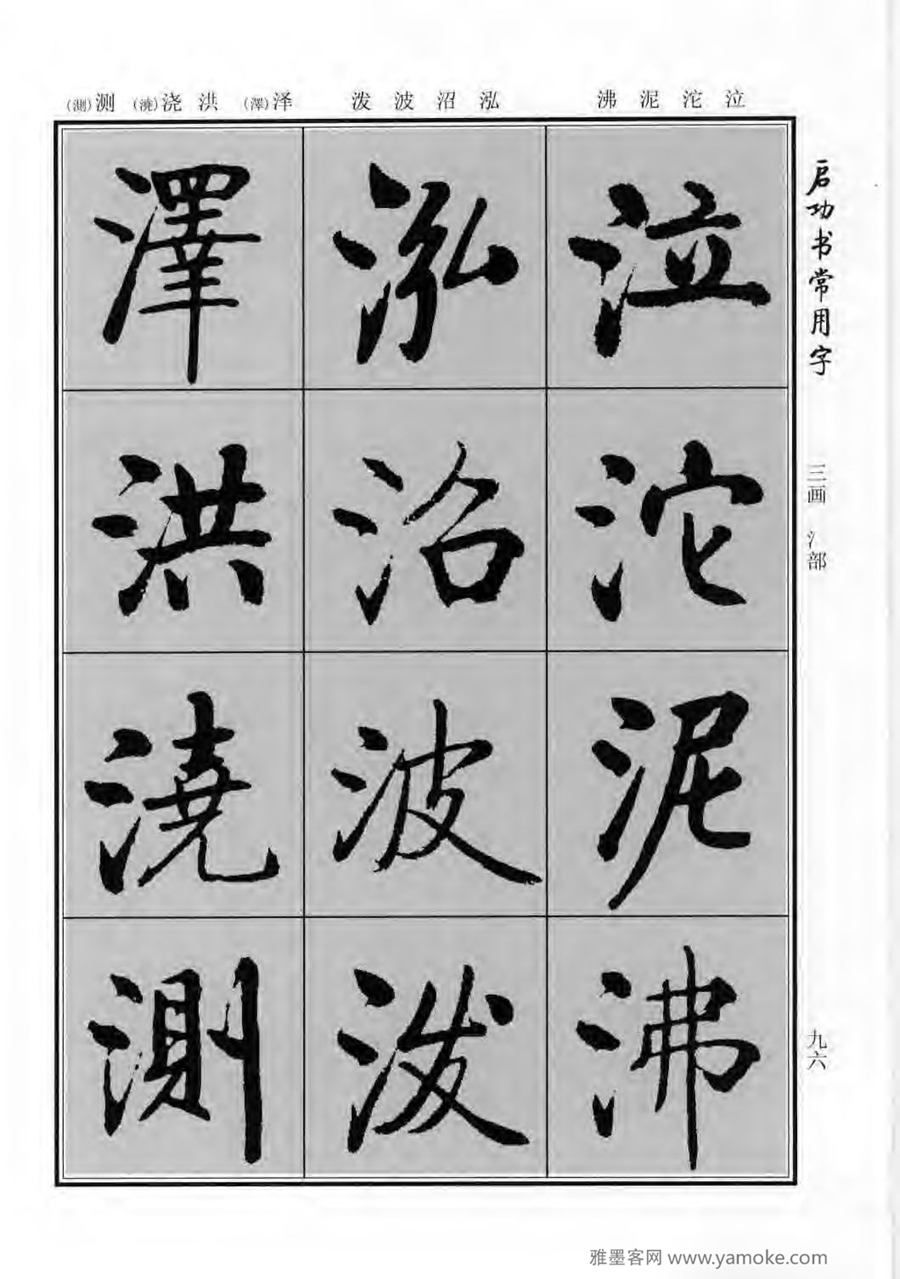 启功书常用字
三画 氵部
九六
泣沱泥沸
泓沼波泼
泽(澤)洪浇(澆)测(測)
泣
沱
泥
沸
泓
沼
波
泼
澤
洪
澆
測
雅墨客网 www.yamoke.com